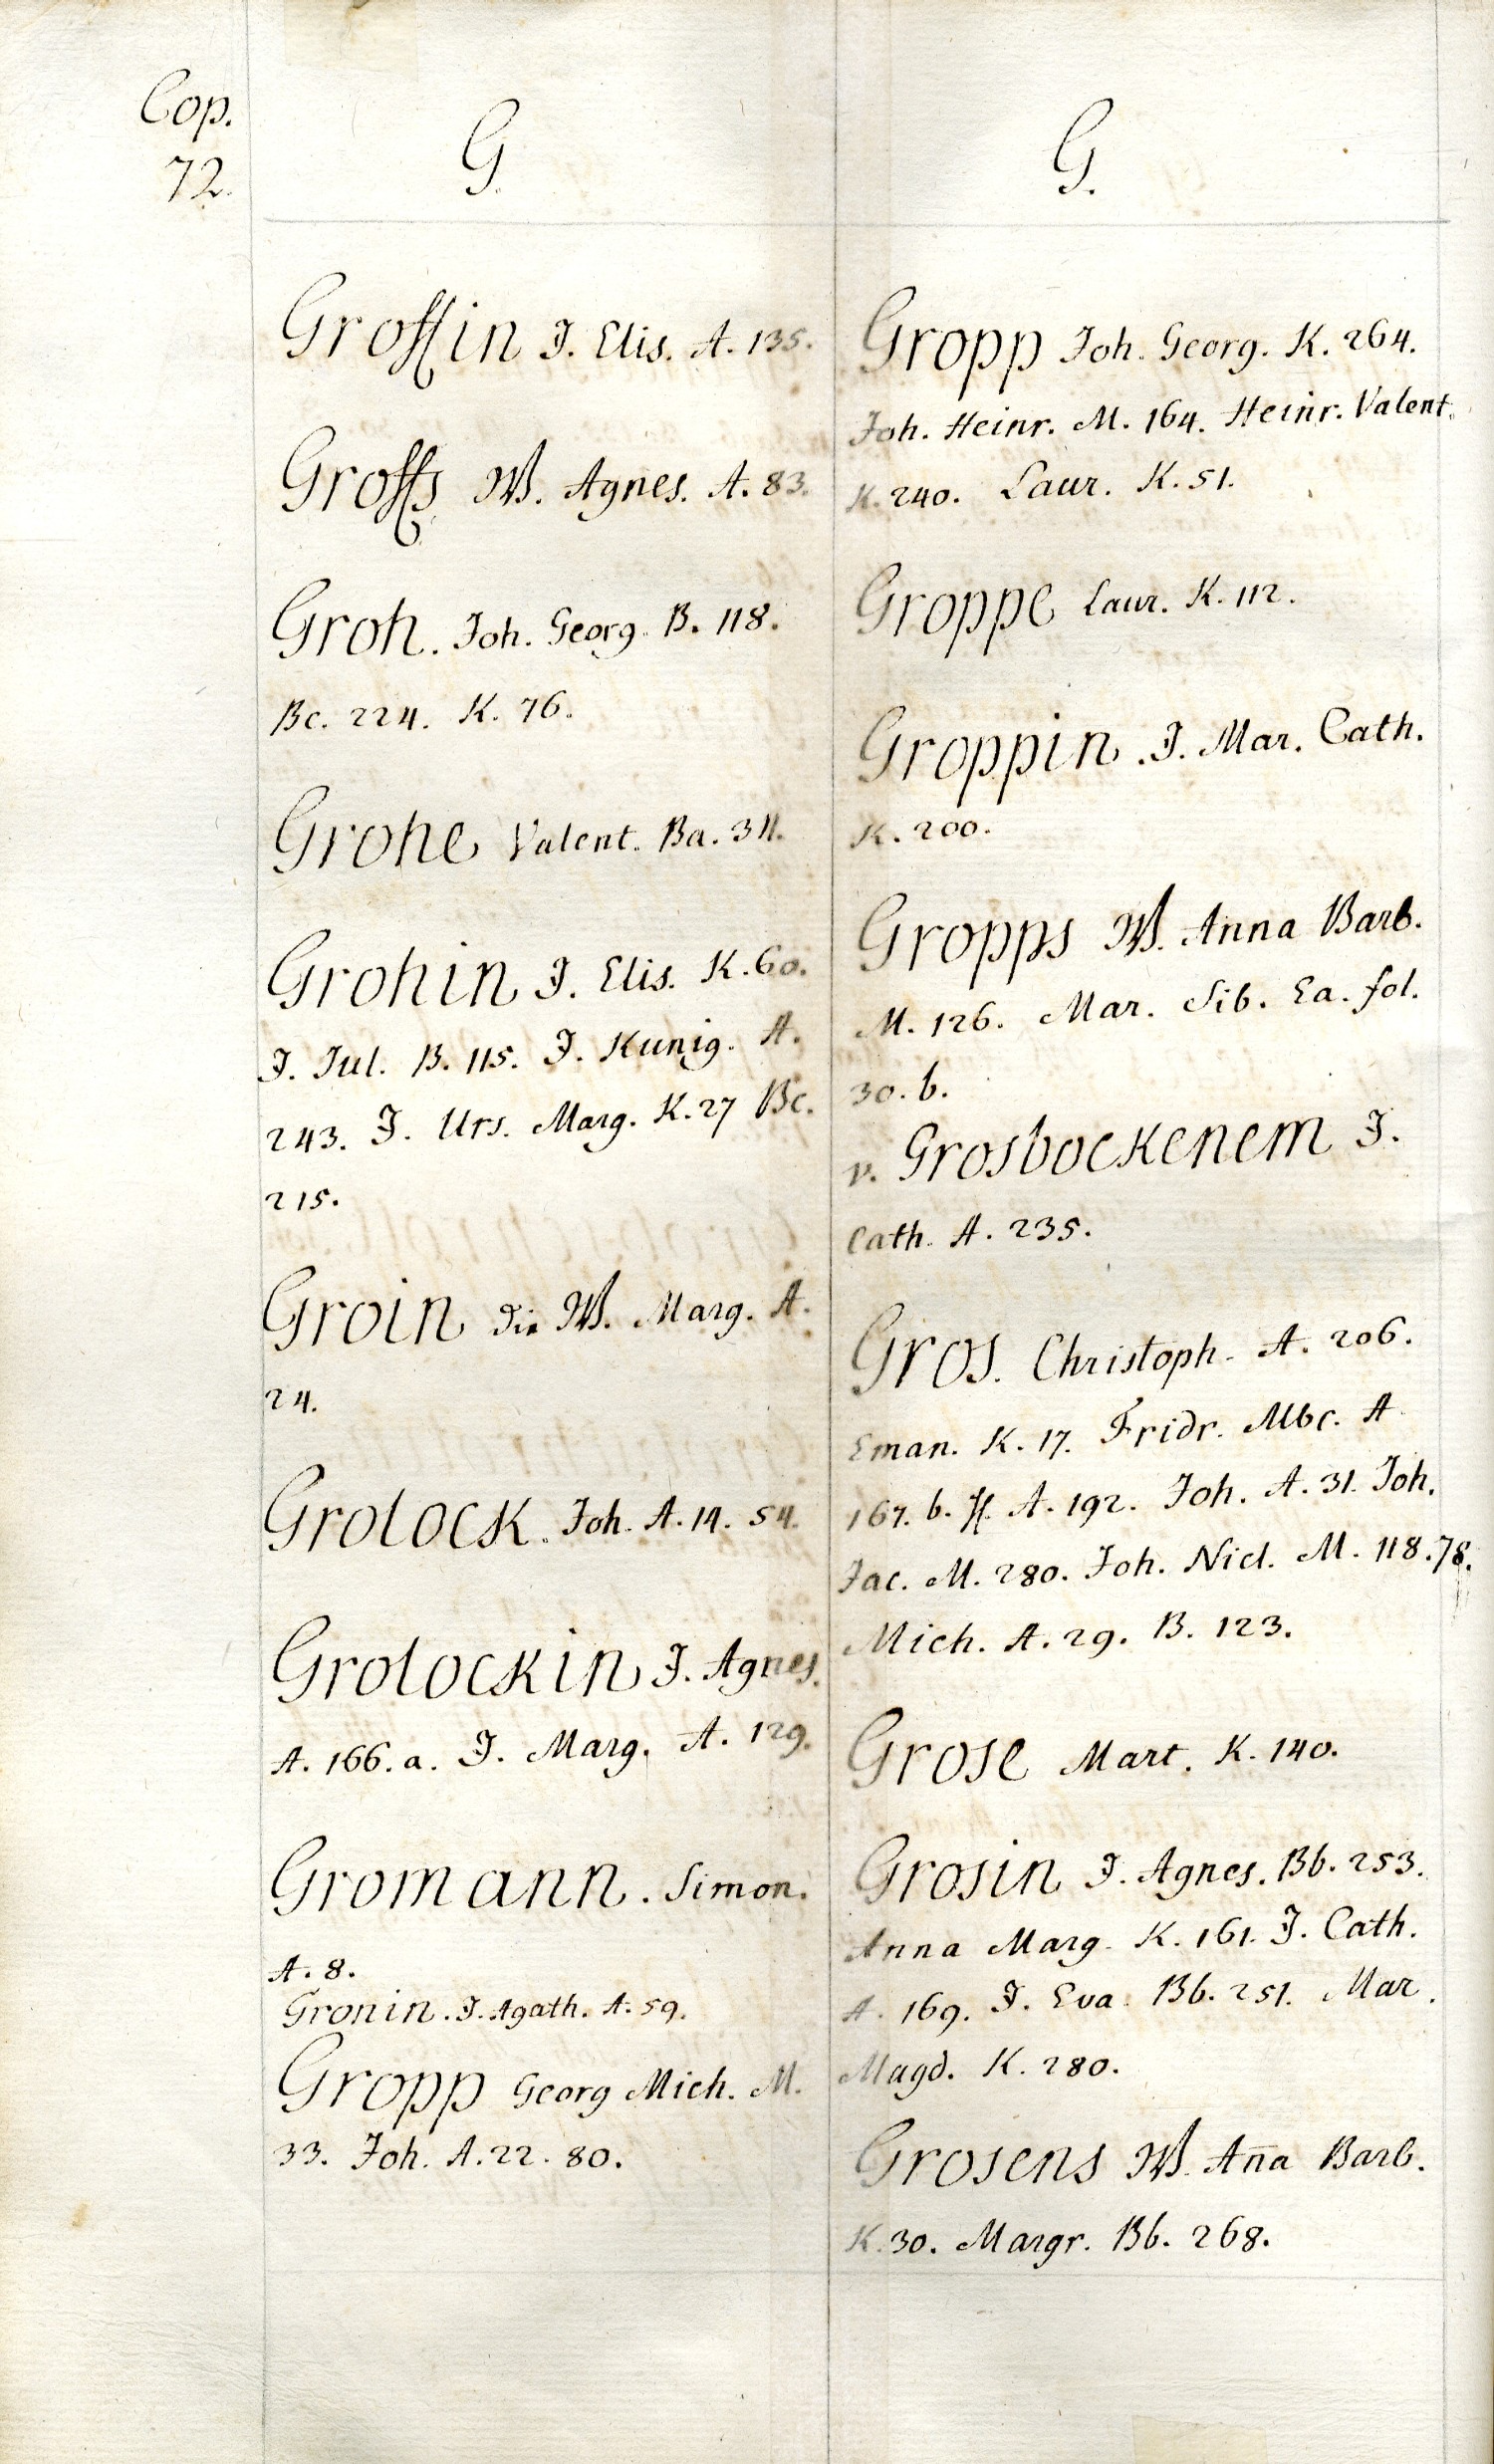 Cop.
72.
G.
Groffin J. Elis. A. 135.
Groffs W. Agnes. A. 83.
Groh. Joh. Georg. B. 118.
Bc. 224. K. 76.
Grohe Valent. Ba.
Grohin J. Elis. K. 60.
J. Jul. B. 115. J. Kunig. A.
243. J. Urs. Marg. K. 27 Bc.
215.
Groin die W. Marg. A.
24.
Grolock. Joh. A. 14. 54.
Grolockin J. Agnes.
A. 166. a. J. Marg. A. 129.
Gromann. Simon.
A. 8.
Gronin. J. Agath. A. 59.
Gropp Georg Mich. M.
33. Joh. A. 22. 80.
G.
Gropp Joh. Georg. K. 264.
Joh. Heinr. M. 164. Heinr. Valent.
K. 240. Laur. K. 51.
Groppe Laur. K. 112.
Groppin. J. Mar. Cath.
K. 200.
Gropps W. Anna Barb.
M. 126. Mar. Sib. Ea. fol.
30. b.
v. Grosbockenem J.
Cath. A. 235.
Gros. Christoph. A. 206.
Eman. K. 17. Fridr. Mbc. A
167. b. A. 192. Joh. A. 31. Joh.
Jac. M. 280. Joh. Nicl. M. 118. 78.
Mich. A. 29. B. 123.
Grose Mart. K. 140.
Grosin J. Agnes. Bb. 253.
Anna Marg. K. 161. J. Cath.
A. 169. J. Eva. Bb. 251. Mar.
Magd. K. 280.
Grosens W. Ana Barb.
K. 30. Margr. Bb. 268.